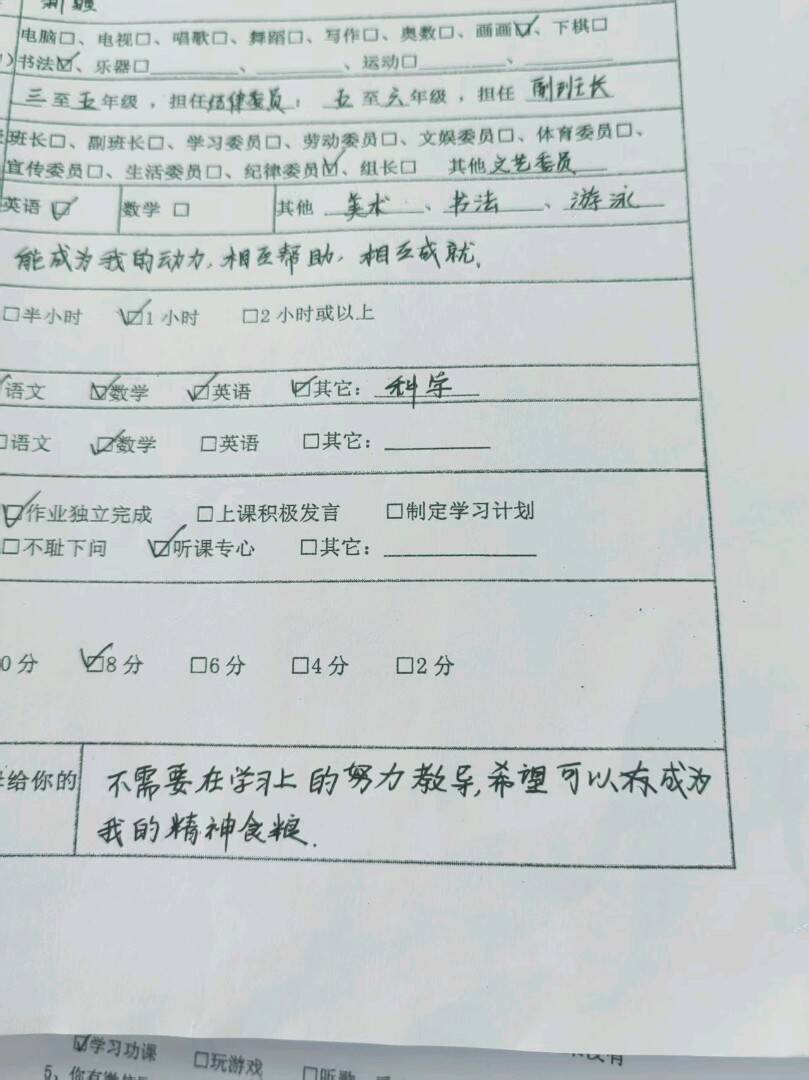 新疆
电脑□、电视□、唱歌□、舞蹈□、写作□、奥数□、画画☑、下棋□
)书法☑、乐器□________、________、运动□________、________
三至五年级，担任纪律委员；五至六年级，担任 副班长
班长□、副班长□、学习委员□、劳动委员□、文娱委员□、体育委员□、
宣传委员□、生活委员□、纪律委员☑、组长□ 其他文艺委员
英语☑ 数学□ 其他 美术、书法、游泳
能成为我的动力,相互帮助,相互成就.
□半小时 ☑1小时 □2小时或以上
语文 ☑数学 ☑英语 ☑其它：科学
□语文 ☑数学 □英语 □其它：________
☑作业独立完成 □上课积极发言 □制定学习计划
□不耻下问 ☑听课专心 □其它：________
0分 ☑8分 □6分 □4分 □2分
给你的 不需要在学习上的努力教导,希望可以成为
我的精神食粮.
☑学习功课 □玩游戏 □听歌 没有
5、你有